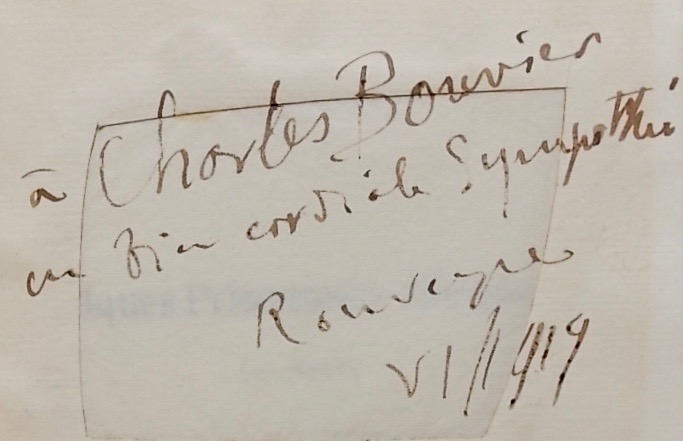 à Charles Bouvier
en bien cordiale Sympathie
Rouveyre
VI/1919